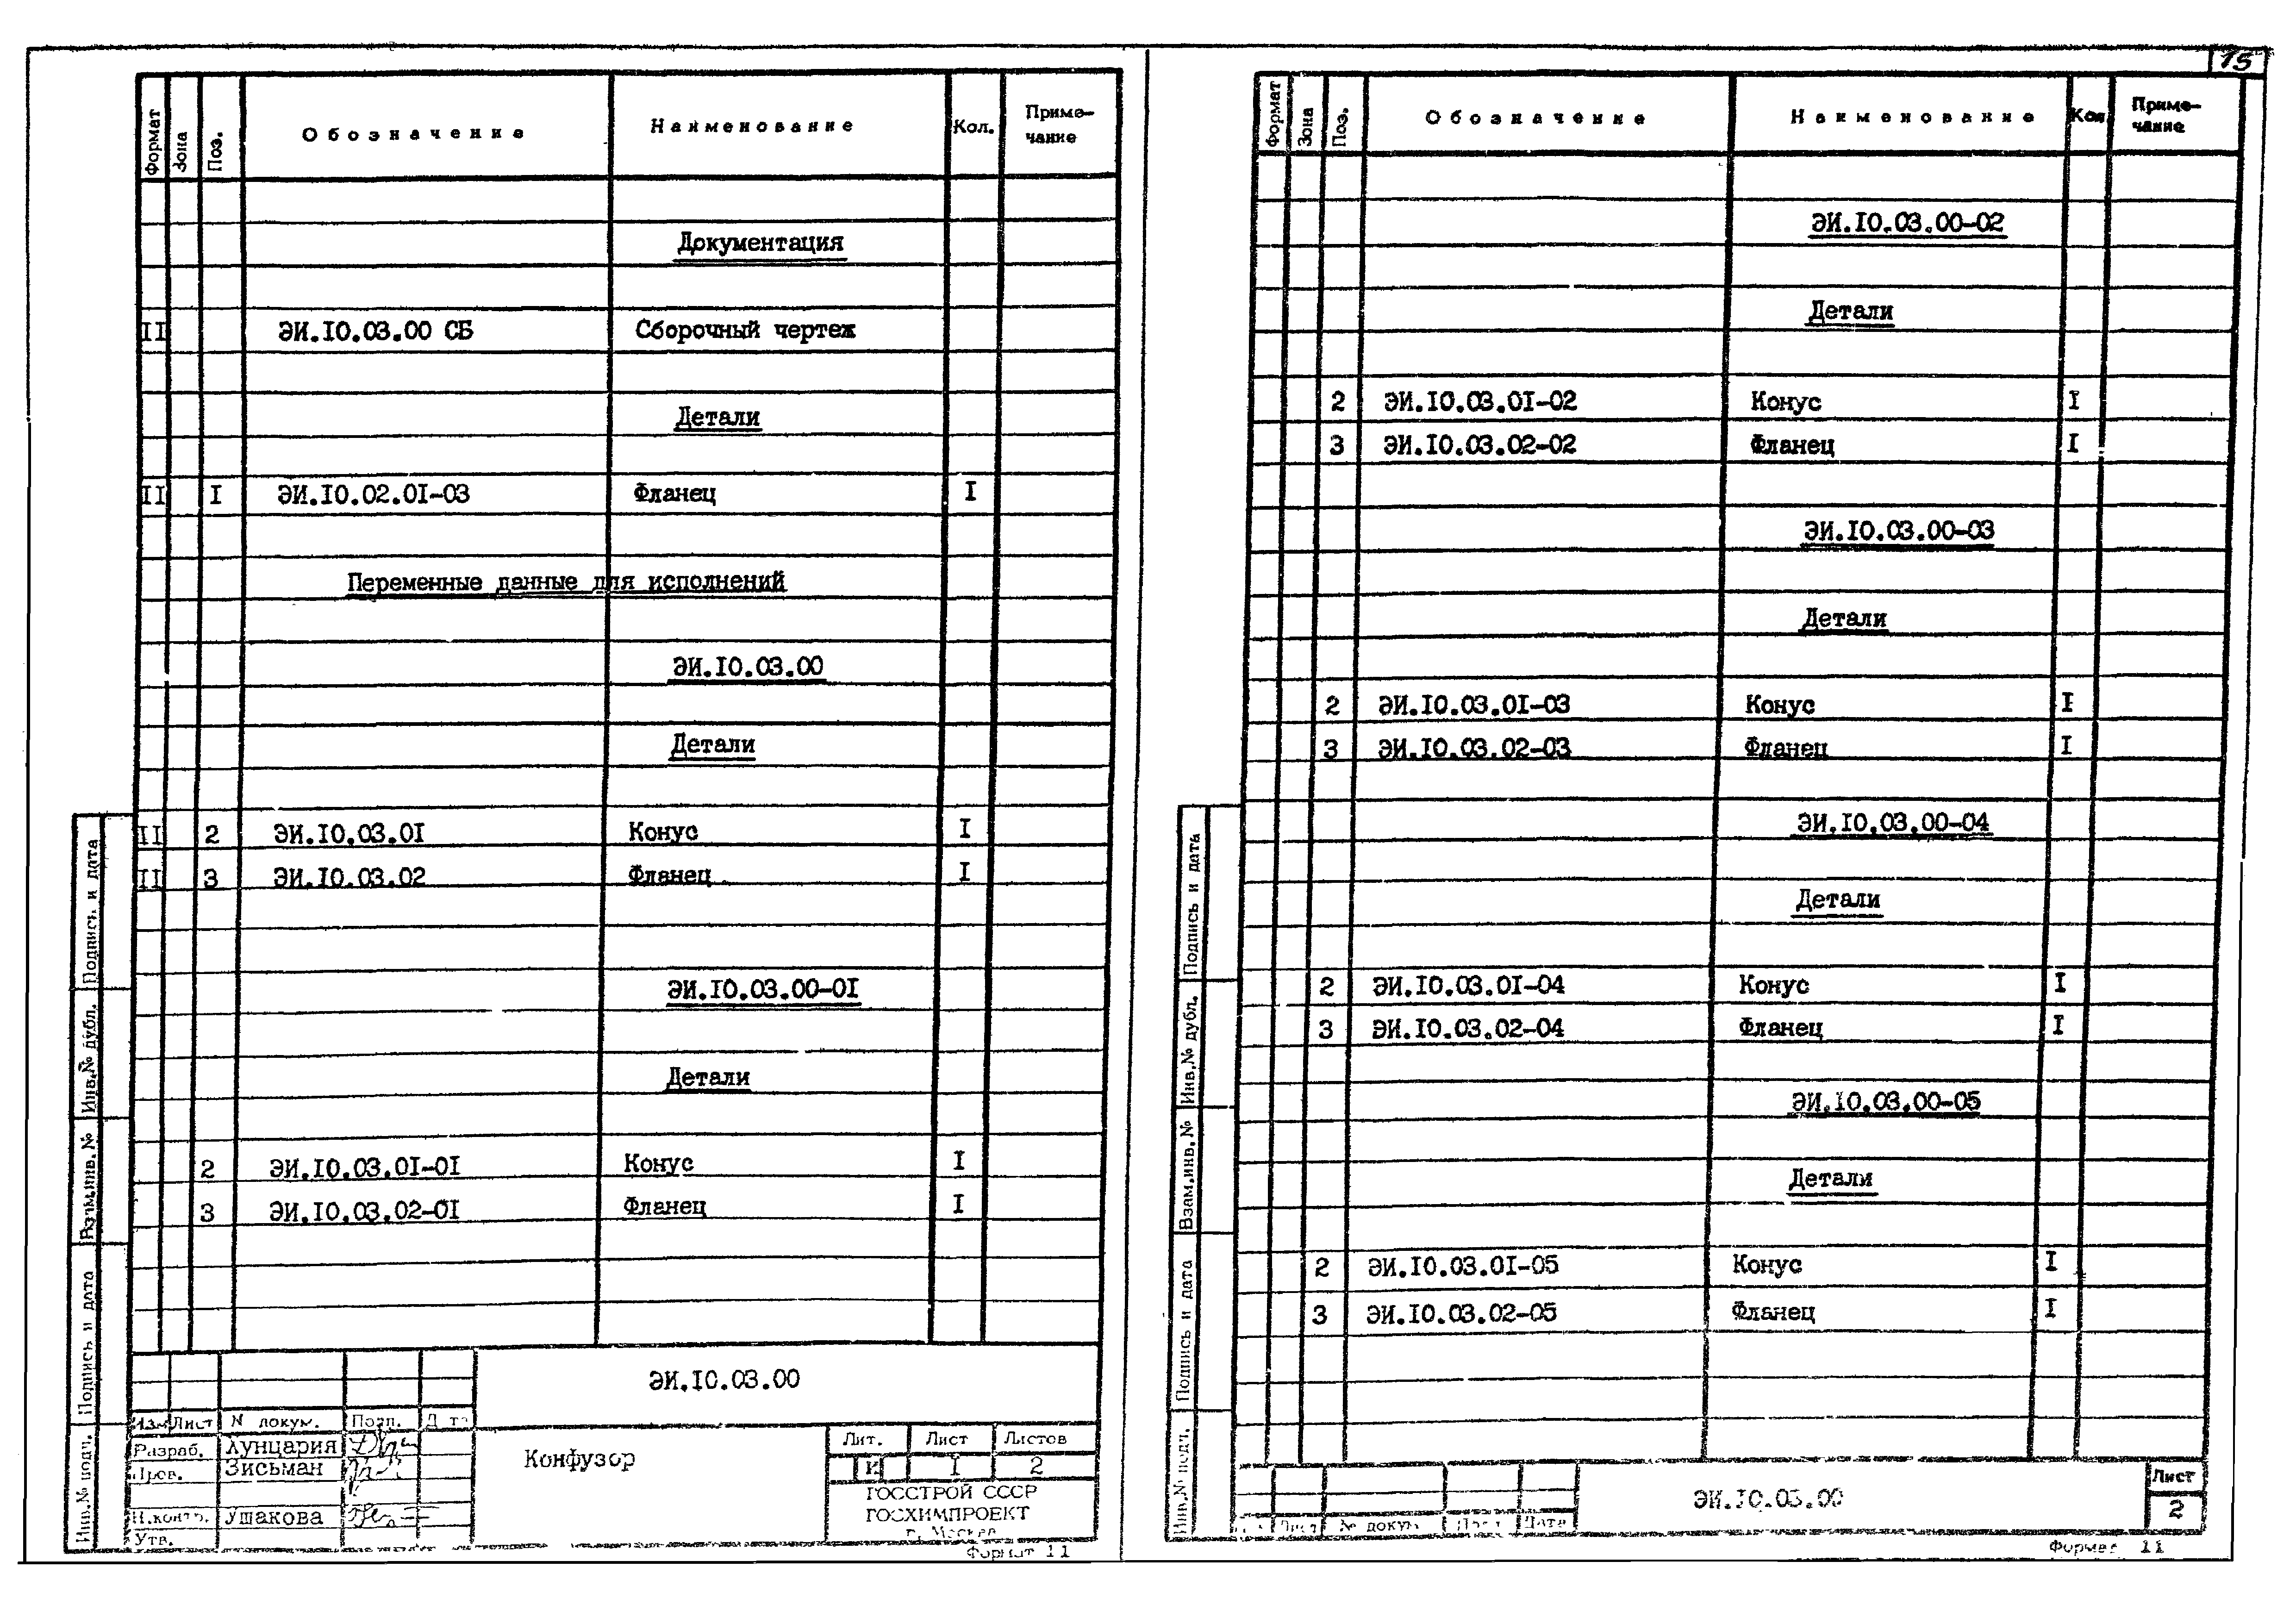 15
Формат Зона Поз. Обозначение Наименование Кол. Приме-
чание
Документация
II ЭИ.I0.03.00 СБ Сборочный чертеж
Детали
II I ЭИ.I0.02.0I-03 Фланец I
Переменные данные для исполнений
ЭИ.I0.03.00
Детали
II 2 ЭИ.I0.03.0I Конус I
II 3 ЭИ.I0.03.02 Фланец I
ЭИ.I0.03.00-0I
Детали
2 ЭИ.I0.03.0I-0I Конус I
3 ЭИ.I0.03.02-0I Фланец I
Подпись и дата
Инв.№ дубл.
Взам.инв.№
Подпись и дата
Инв.№ подл.
ЭИ.I0.03.00
Изм Лист № докум. Подп. Дата
Разраб. Лунцария
Пров. Зисьман
Н.контр. Ушакова
Утв.
Конфузор
Лит. Лист Листов
И I 2
ГОССТРОЙ СССР
ГОСХИМПРОЕКТ
г. Москва
Формат 11
Формат Зона Поз. Обозначение Наименование Кол Приме-
чание
ЭИ.I0.03.00-02
Детали
2 ЭИ.I0.03.0I-02 Конус I
3 ЭИ.I0.03.02-02 Фланец I
ЭИ.I0.03.00-03
Детали
2 ЭИ.I0.03.0I-03 Конус I
3 ЭИ.I0.03.02-03 Фланец I
ЭИ.I0.03.00-04
Детали
2 ЭИ.I0.03.0I-04 Конус I
3 ЭИ.I0.03.02-04 Фланец I
ЭИ.I0.03.00-05
Детали
2 ЭИ.I0.03.0I-05 Конус I
3 ЭИ.I0.03.02-05 Фланец I
Подпись и дата
Инв.№ дубл.
Взам.инв.№
Подпись и дата
Инв.№ подл.
Лист № докум Подп Дата
ЭИ.I0.03.00
Лист
2
Формат 11